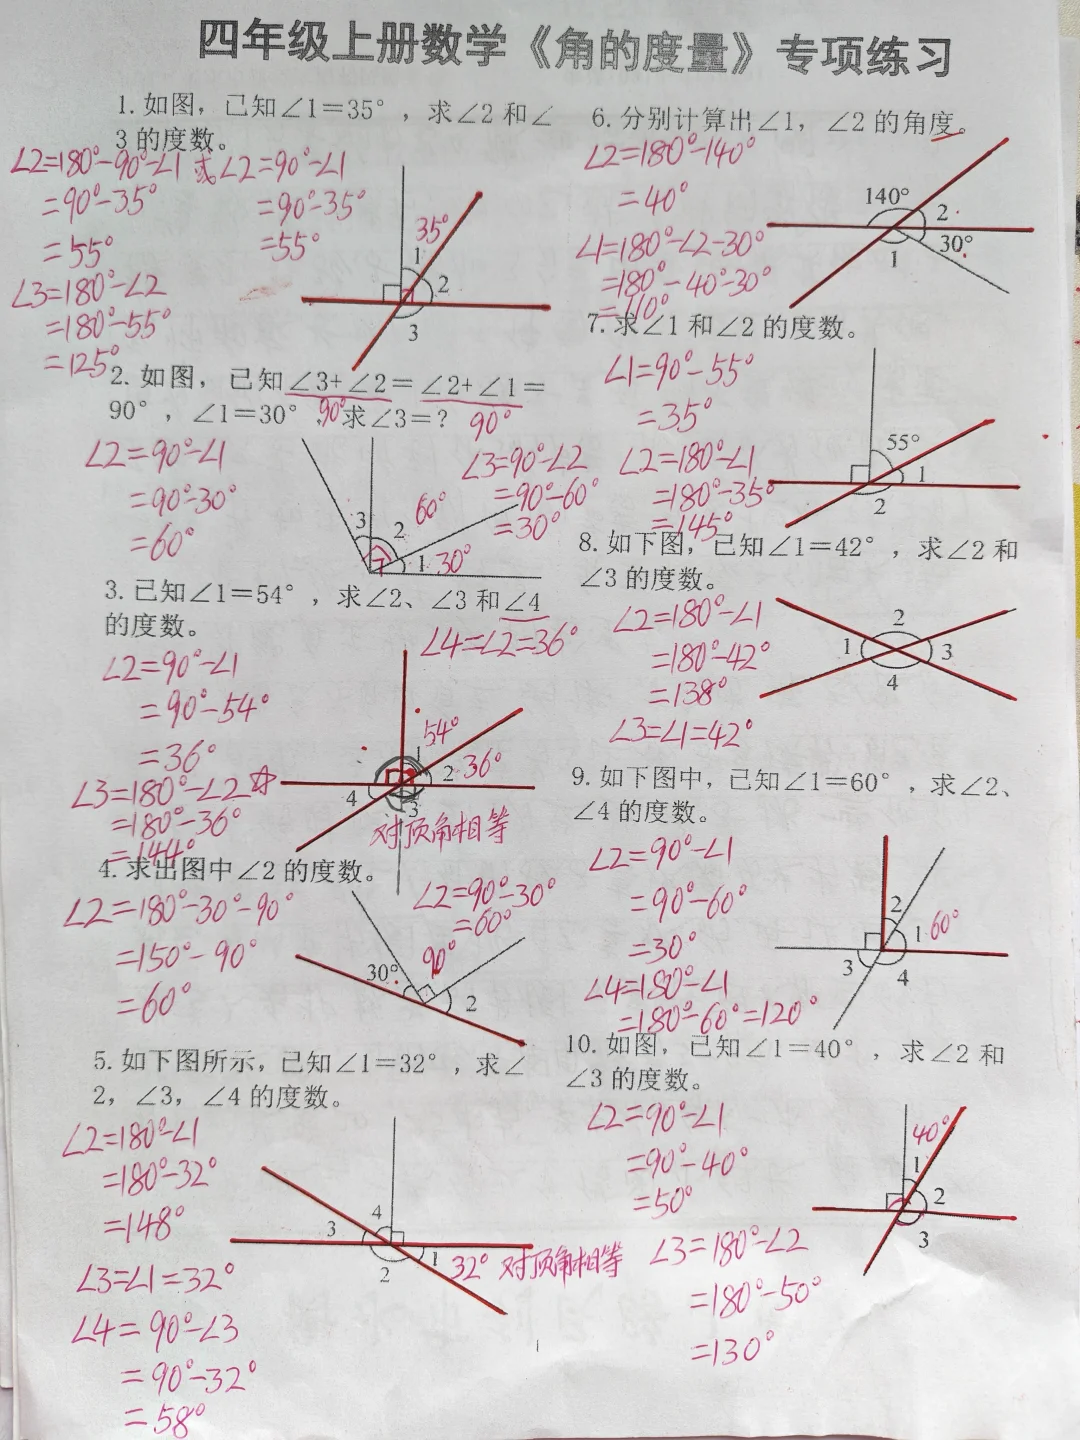 四年级上册数学《角的度量》专项练习
1. 如图，已知∠1=35°，求∠2 和∠
3 的度数。
∠2=180°-90°-∠1 或 ∠2=90°-∠1
=90°-35° =90°-35°
=55° =55°
∠3=180°-∠2
=180°-55°
=125°
35°
1
2
3
2. 如图，已知∠3+∠2=∠2+∠1=
90°，∠1=30°，求∠3=?
90° 90°
∠2=90°-∠1
=90°-30°
=60°
∠3=90°-∠2
=90°-60°
=30°
3
2
60°
1
30°
3. 已知∠1=54°，求∠2、∠3 和∠4
的度数。
∠4=∠2=36°
∠2=90°-∠1
=90°-54°
=36°
∠3=180°-∠2
=180°-36°
=144°
54°
1
2
36°
4
3
对顶角相等
4. 求出图中∠2 的度数。
∠2=180°-30°-90°
=150°-90°
=60°
∠2=90°-30°
=60°
30°
90°
2
5. 如下图所示，已知∠1=32°，求∠
2，∠3，∠4 的度数。
∠2=180°-∠1
=180°-32°
=148°
∠3=∠1=32°
∠4=90°-∠3
=90°-32°
=58°
4
3
1
2
32° 对顶角相等
6. 分别计算出∠1，∠2 的角度。
∠2=180°-140°
=40°
∠1=180°-∠2-30°
=180°-40°-30°
=110°
140°
2
30°
1
7. 求∠1 和∠2 的度数。
∠1=90°-55°
=35°
∠2=180°-∠1
=180°-35°
=145°
55°
1
2
8. 如下图，已知∠1=42°，求∠2 和
∠3 的度数。
∠2=180°-∠1
=180°-42°
=138°
∠3=∠1=42°
2
1
3
4
9. 如下图中，已知∠1=60°，求∠2、
∠4 的度数。
∠2=90°-∠1
=90°-60°
=30°
∠4=180°-∠1
=180°-60°=120°
2
1
60°
3
4
10. 如图，已知∠1=40°，求∠2 和
∠3 的度数。
∠2=90°-∠1
=90°-40°
=50°
∠3=180°-∠2
=180°-50°
=130°
40°
1
2
3
1